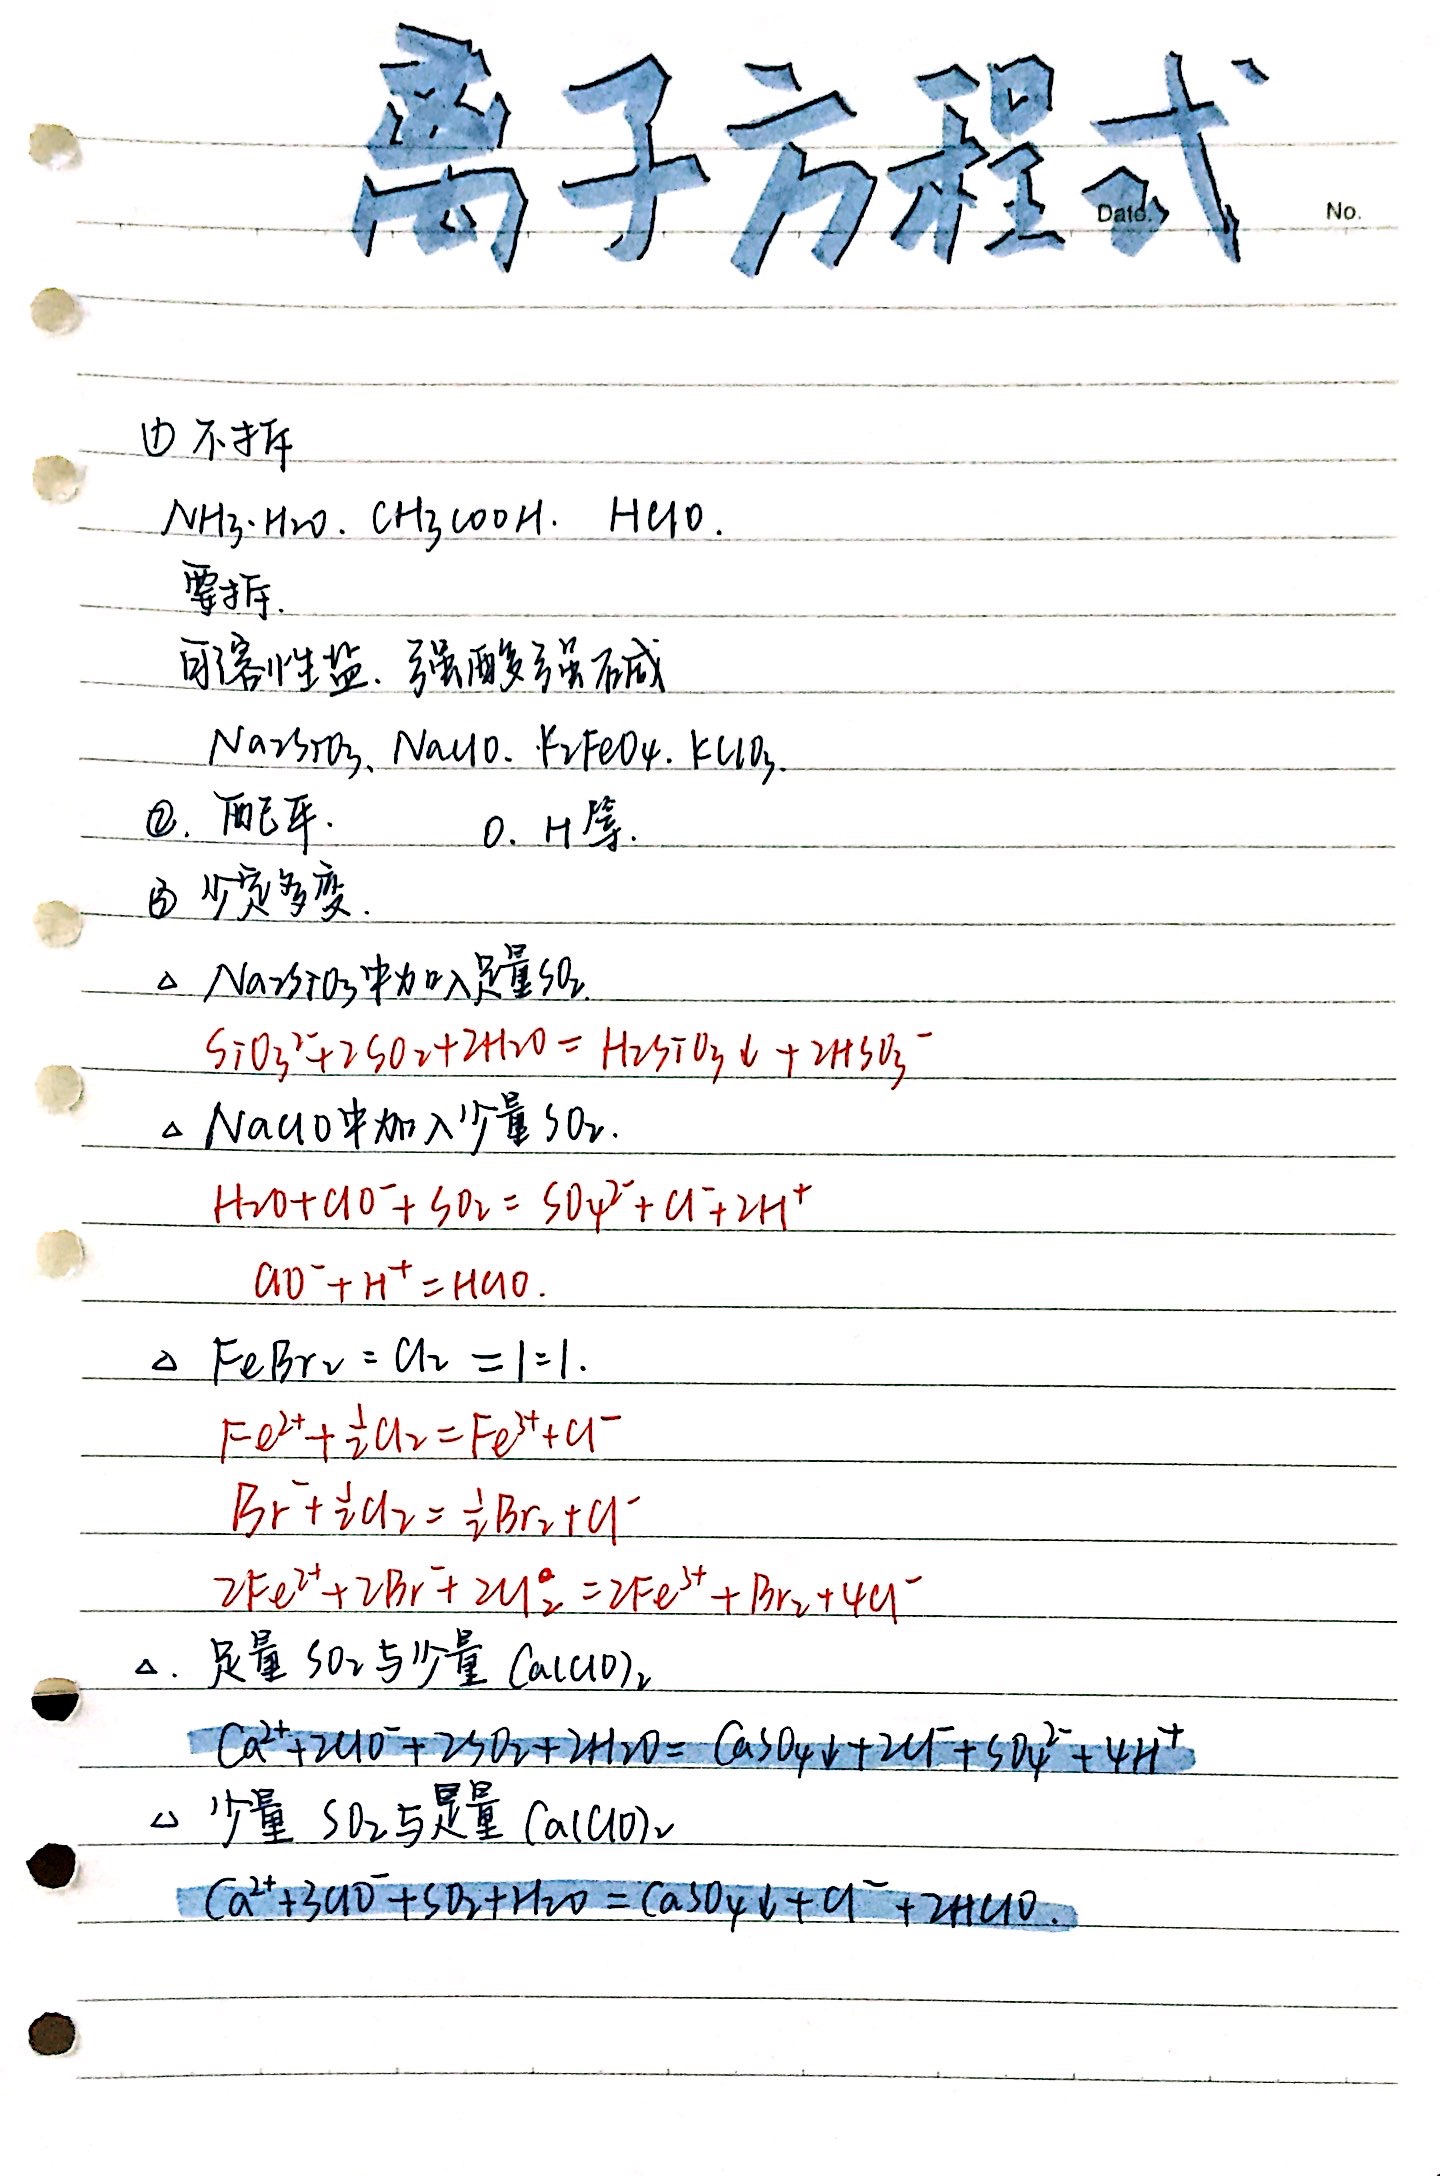 离子方程式
Date. No.
① 不拆
NH₃·H₂O. CH₃COOH. HClO.
要拆.
可溶性盐. 强酸强碱
Na₂SiO₃、NaClO. K₂FeO₄. KClO₃.
②. 配平. O. H等.
③ 少定多变.
△ Na₂SiO₃中加入足量SO₂.
SiO₃²⁻+2SO₂+2H₂O = H₂SiO₃↓ + 2HSO₃⁻
△ NaClO中加入少量SO₂.
H₂O+ClO⁻+SO₂ = SO₄²⁻+Cl⁻+2H⁺
ClO⁻+H⁺=HClO.
△ FeBr₂ = Cl₂ =1=1.
Fe²⁺+½Cl₂=Fe³⁺+Cl⁻
Br⁻+½Cl₂=½Br₂+Cl⁻
2Fe²⁺+2Br⁻+2Cl₂=2Fe³⁺+Br₂+4Cl⁻
△. 足量 SO₂与少量 Ca(ClO)₂
Ca²⁺+2ClO⁻+2SO₂+2H₂O= CaSO₄↓+2Cl⁻+SO₄²⁻+4H⁺
△ 少量 SO₂与足量 Ca(ClO)₂
Ca²⁺+3ClO⁻+SO₂+H₂O=CaSO₄↓+Cl⁻+2HClO.